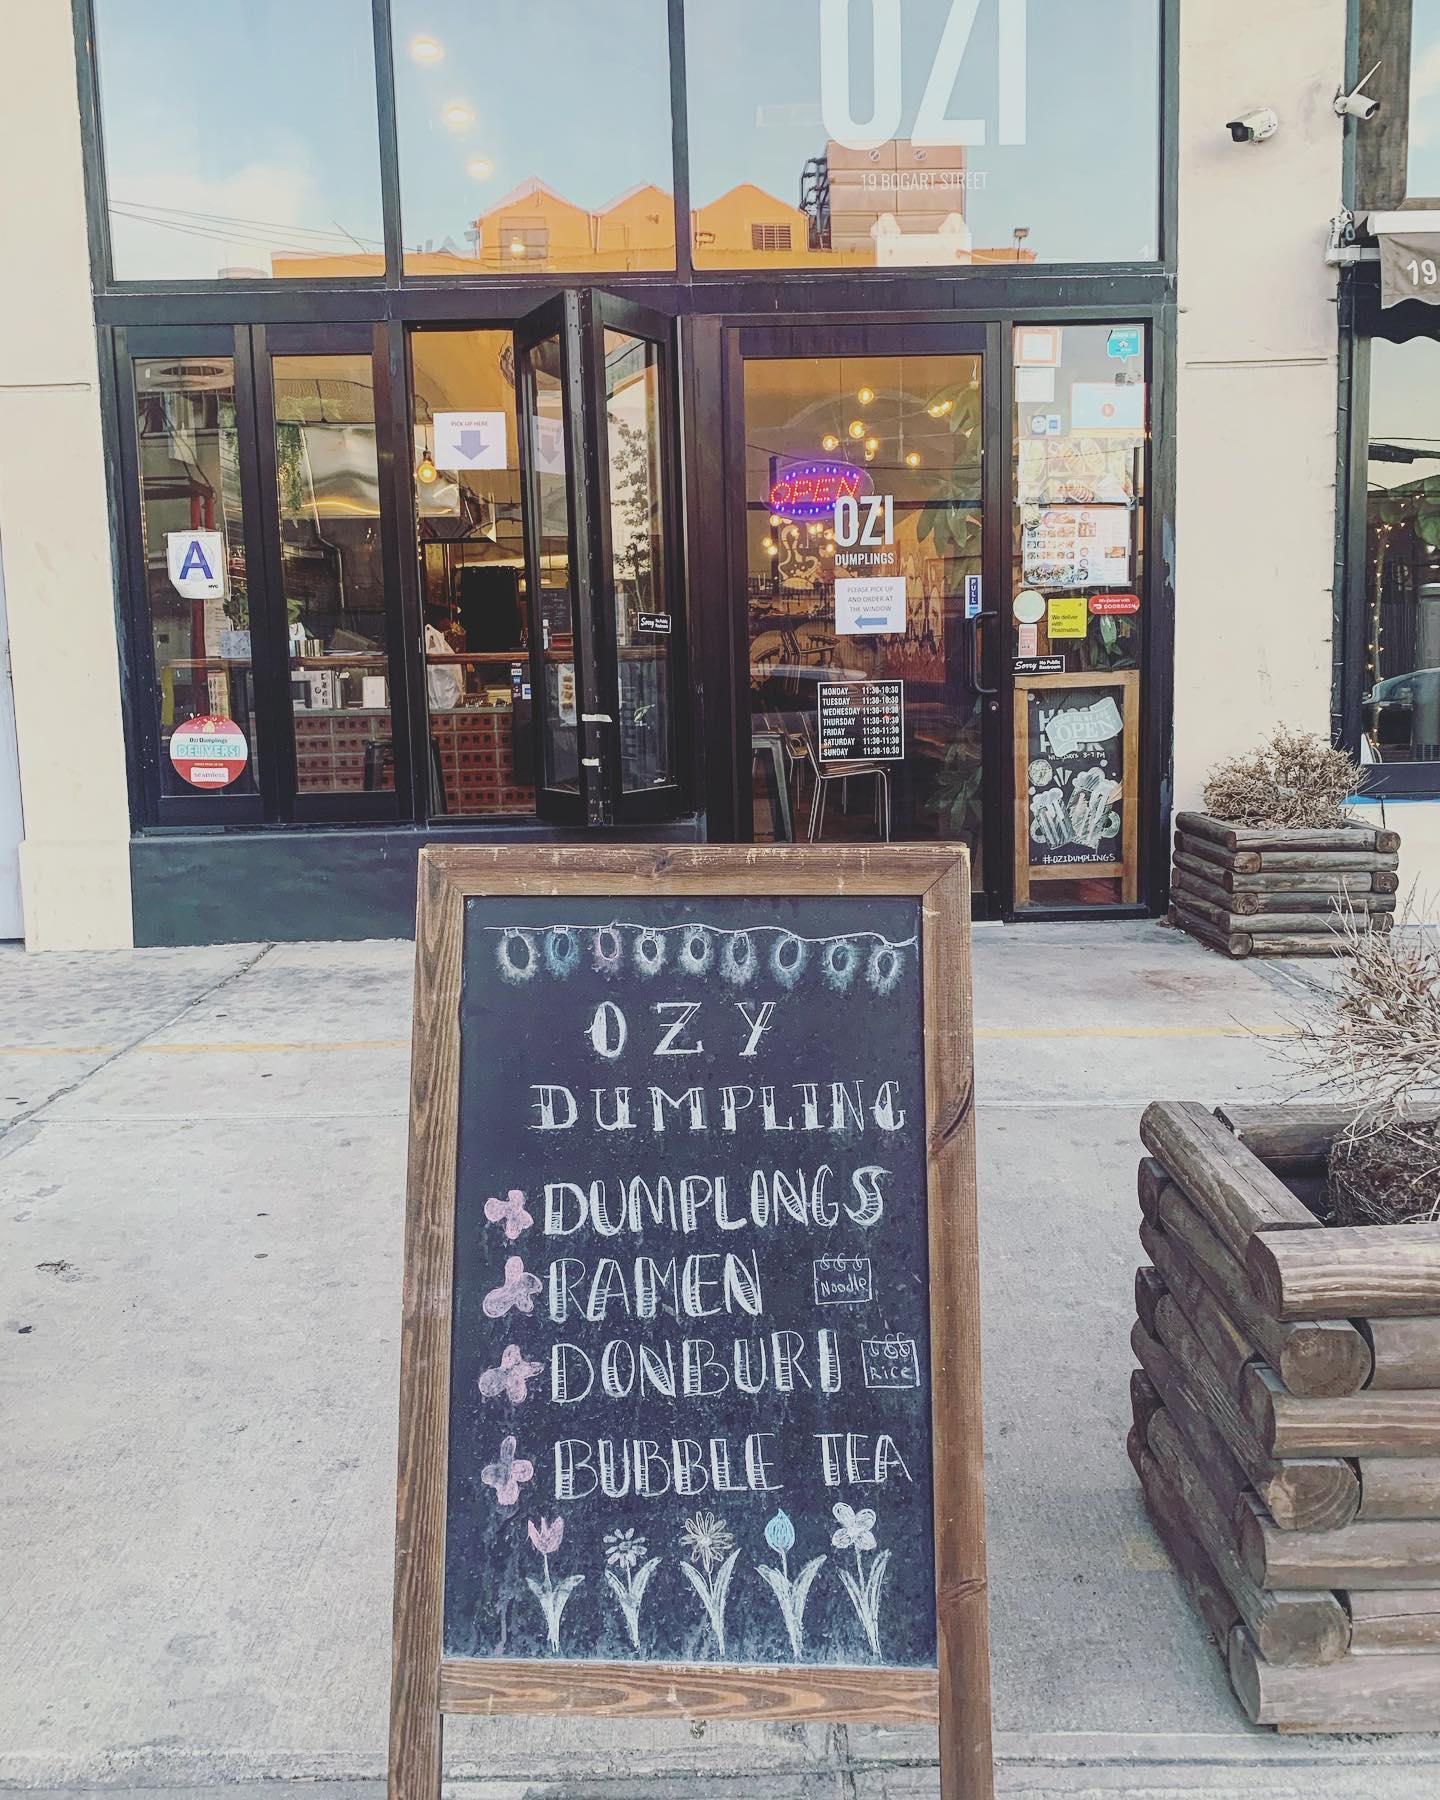 OZI
19 BOGART STREET
19
PICK UP HERE
OPEN
OZI
DUMPLINGS
PLEASE PICK UP
AND ORDER AT
THE WINDOW
PULL
A
NYC
Sorry No Public
Restroom
We deliver
with
Postmates.
We deliver with
DOORDASH
Sorry No Public
Restroom
MONDAY 11:30-10:30
TUESDAY 11:30-10:30
WEDNESDAY 11:30-10:30
THURSDAY 11:30-10:30
FRIDAY 11:30-11:30
SATURDAY 11:30-11:30
SUNDAY 11:30-10:30
Ozi Dumplings
DELIVERS!
seamless
OPEN
3-7 PM
#OZIDUMPLINGS
OZY
DUMPLING
DUMPLINGS
RAMEN Noodle
DONBURI Rice
BUBBLE TEA